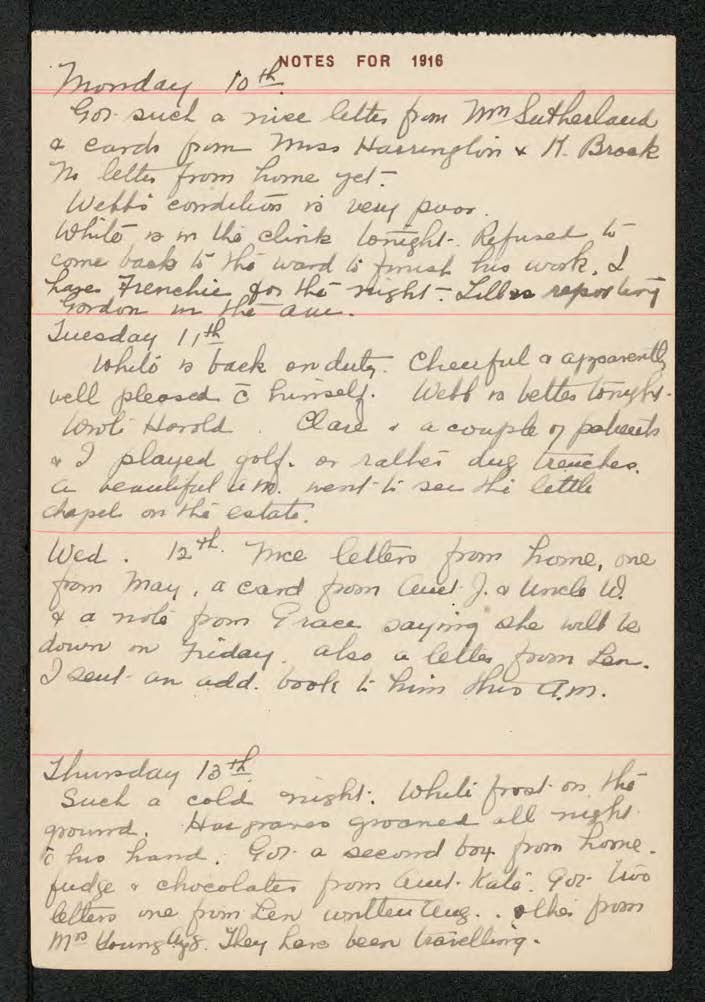 NOTES FOR 1916
Monday 10th.
Got such a nice letter from Mrs Sutherland
& cards from Miss Harrington & K. Brock
No letter from home yet.
Webb's condition is very poor.
White is in the clink tonight. Refused to
come back to the ward to finish his work. I
have Frenchie for the night. Lill is reporting
Gordon in the am.
Tuesday 11th
White is back on duty. Cheerful & apparently
well pleased c̄ himself. Webb is better tonight.
Wrote Harold. Clare & a couple of patients
& I played golf. or rather dug trenches.
a beautiful a.m. went to see the little
chapel on the estate.
Wed. 12th. Nice letters from home, one
from May, a card from Aunt J. & Uncle W.
& a note from Grace saying she will be
down on Friday. also a letter from Len.
I sent an add. book to him this a.m.
Thursday 13th.
Such a cold night. White frost on the
ground. Hargraves groaned all night
c̄ his hand. Got a second box from home.
fudge & chocolates from Aunt Kate. Got two
letters one from Len written Aug. . other from
Mrs Young Aug. They have been travelling.